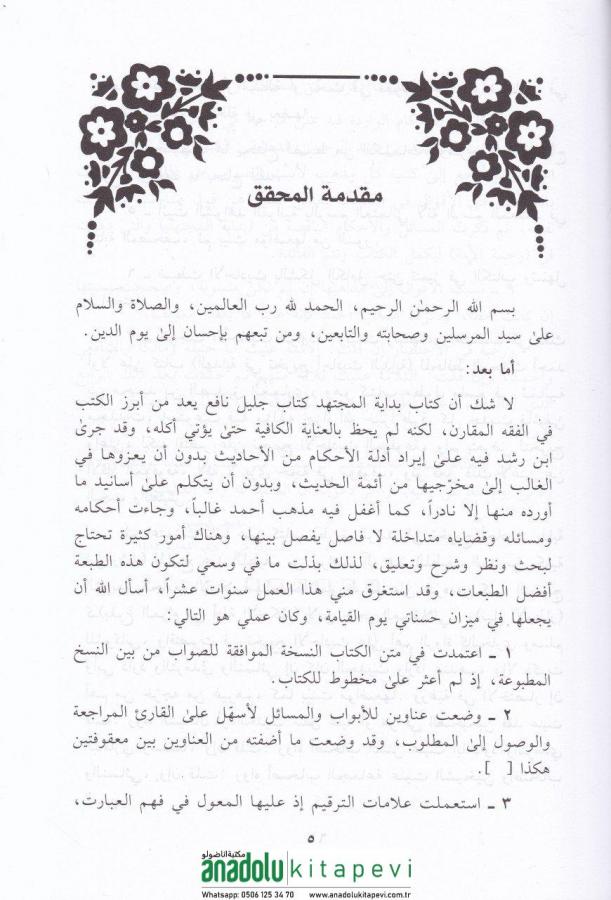 مقدمة المحقق
بسم الله الرحمٰن الرحيم، الحمد لله رب العالمين، والصلاة والسلام
علىٰ سيد المرسلين وصحابته والتابعين، ومن تبعهم بإحسان إلىٰ يوم الدين.
أما بعد:
لا شك أن كتاب بداية المجتهد كتاب جليل نافع يعد من أبرز الكتب
في الفقه المقارن، لكنه لم يحظ بالعناية الكافية حتىٰ يؤتي أكله، وقد جرىٰ
ابن رشد فيه علىٰ إيراد أدلة الأحكام من الأحاديث بدون أن يعزوها في
الغالب إلىٰ مخرّجيها من أئمة الحديث، وبدون أن يتكلم علىٰ أسانيد ما
أورده منها إلا نادراً، كما أغفل فيه مذهب أحمد غالباً، وجاءت أحكامه
ومسائله وقضاياه متداخلة لا فاصل يفصل بينها، وهناك أمور كثيرة تحتاج
لبحث ونظر وشرح وتعليق، لذلك بذلت ما في وسعي لتكون هذه الطبعة
أفضل الطبعات، وقد استغرق مني هذا العمل سنوات عشراً، أسأل الله أن
يجعلها في ميزان حسناتي يوم القيامة، وكان عملي هو التالي:
١ ـ اعتمدت في متن الكتاب النسخة الموافقة للصواب من بين النسخ
المطبوعة، إذ لم أعثر علىٰ مخطوط للكتاب.
٢ ـ وضعت عناوين للأبواب والمسائل لأسهّل علىٰ القارئ المراجعة
والوصول إلىٰ المطلوب، وقد وضعت ما أضفته من العناوين بين معقوفتين
هكذا [ ].
٣ ـ استعملت علامات الترقيم إذ عليها المعول في فهم العبارت،
٥
مكتبة اناضولو
anadolu kitapevi
Whatsapp: 0506 125 34 70 www.anadolukitapevi.com.tr